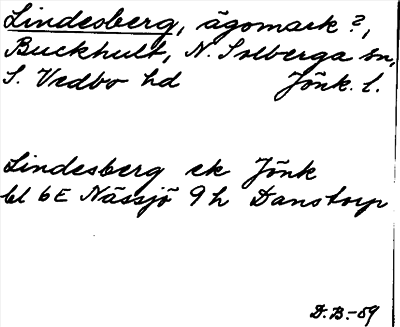 Lindesberg, ägomark?,
Buckhult, N. Solberga sn,
S. Vedbo hd Jönk. l.
Lindesberg ek Jönk
bl 6E Nässjö 9h Danstorp
D.B.-59